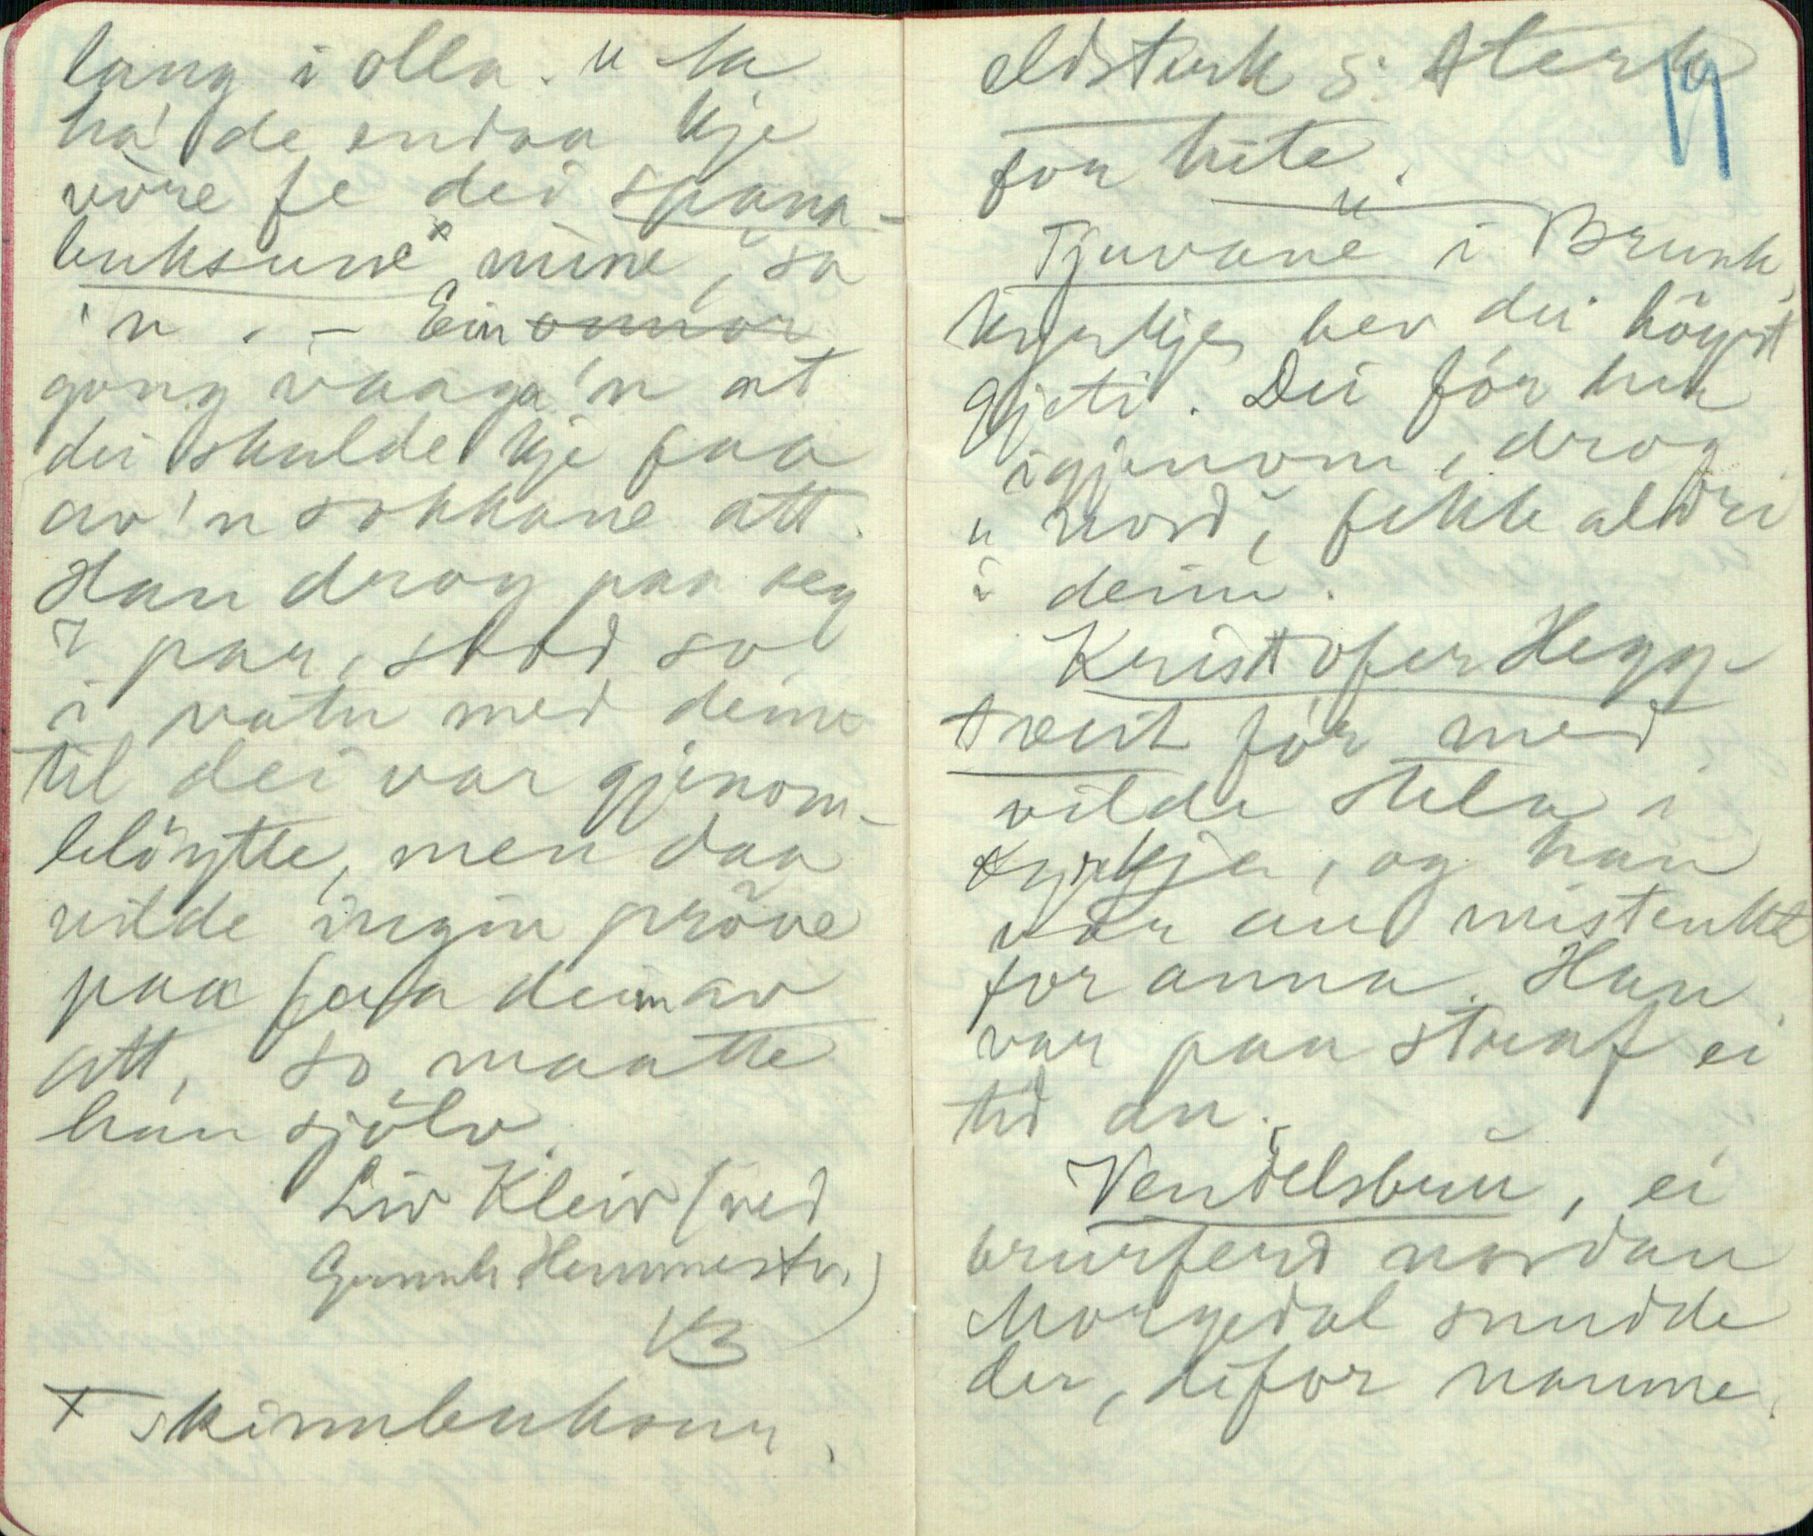 lang i olla. " Ta
ha' de endaa kje
vore fe dei spana-
buksune× mine, sa
'n. - Ein onnor
gong vaaga'n at
dei skulde kje faa
av'n sokkane att.
Han drog paa seg
7 par, stod so
i vatn med deim
til dei var gjenom-
bløytte, men daa
vilde ingin prøve
paa faa deim av
att, so maatte
han sjølv.
Liv Kleiv (ved
Gunnh. Hemmestv.)
× skinnbuksur.
19
eldsterk ɔ: sterk
for hite.
Tjuvane i Brunk.
kyrkje, hev dei høyrt
gjeti. Dei fór her
igjenom, drog
nord, fekk aldri
i deim.
Kristofer Hegg-
tveit fór med
vilde stela i
kyrkja, og han
var au mistenkt
for anna. Han
var paa straf ei
tid au.
Vendelsbuu, ei
brurferd nordan
Morgedal snudde
der, difor namne.